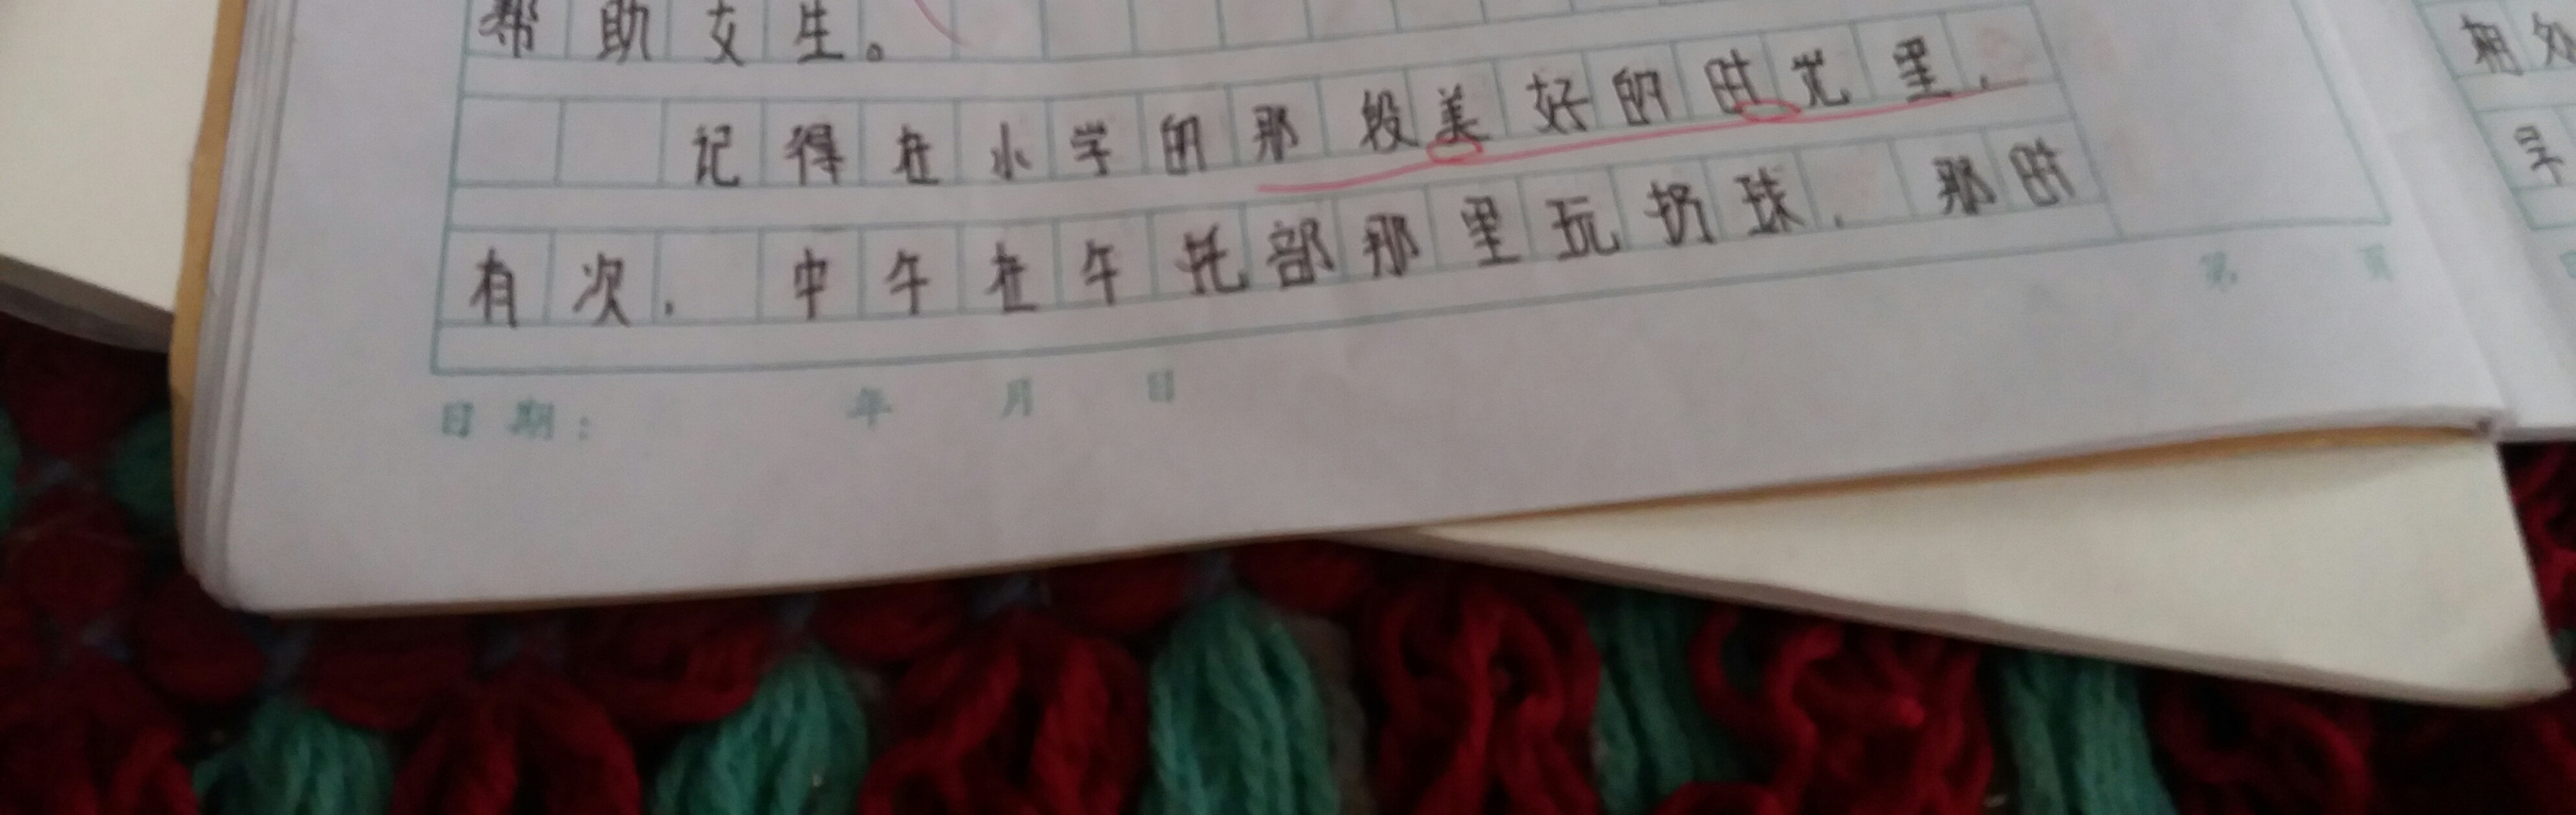 帮助女生。
记得在小学的那段美好的时光里，
有次，中午在午托部那里玩扔球，那时
第 页
日期： 年 月 日